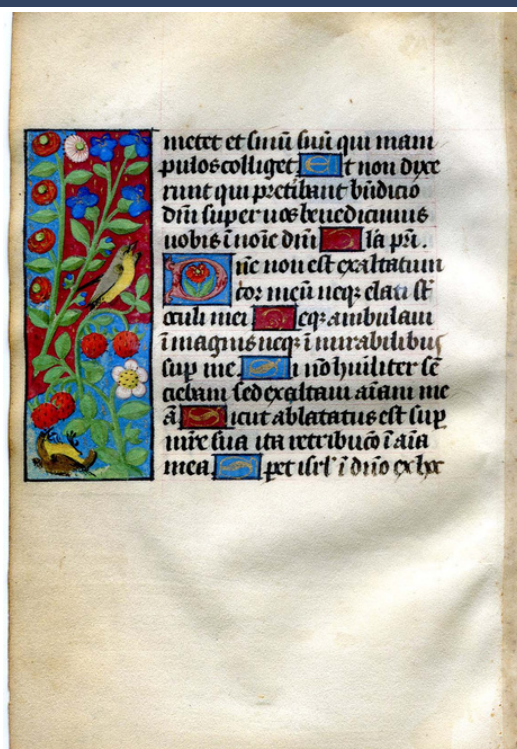 metet et sinū suū qui mani
pulos colliget Et non dixe
runt qui pretibant b̄ndicio
dn̄i super uos benedicimus
uobis ī noīe dn̄i Gla pr̄i.
Dn̄e non est exaltatum
cor meū neqȝ elati st̄
oculi mei Neqȝ ambulaui
ī magnis neqȝ ī mirabilibus
sup me. Si nō hūiliter sē
ciebam sed exaltaui aīam me
ā Sicut ablatatus est sup
mr̄e sua ita retribucō ī aīa
mea Spet isrl' ī dn̄o ex hoc